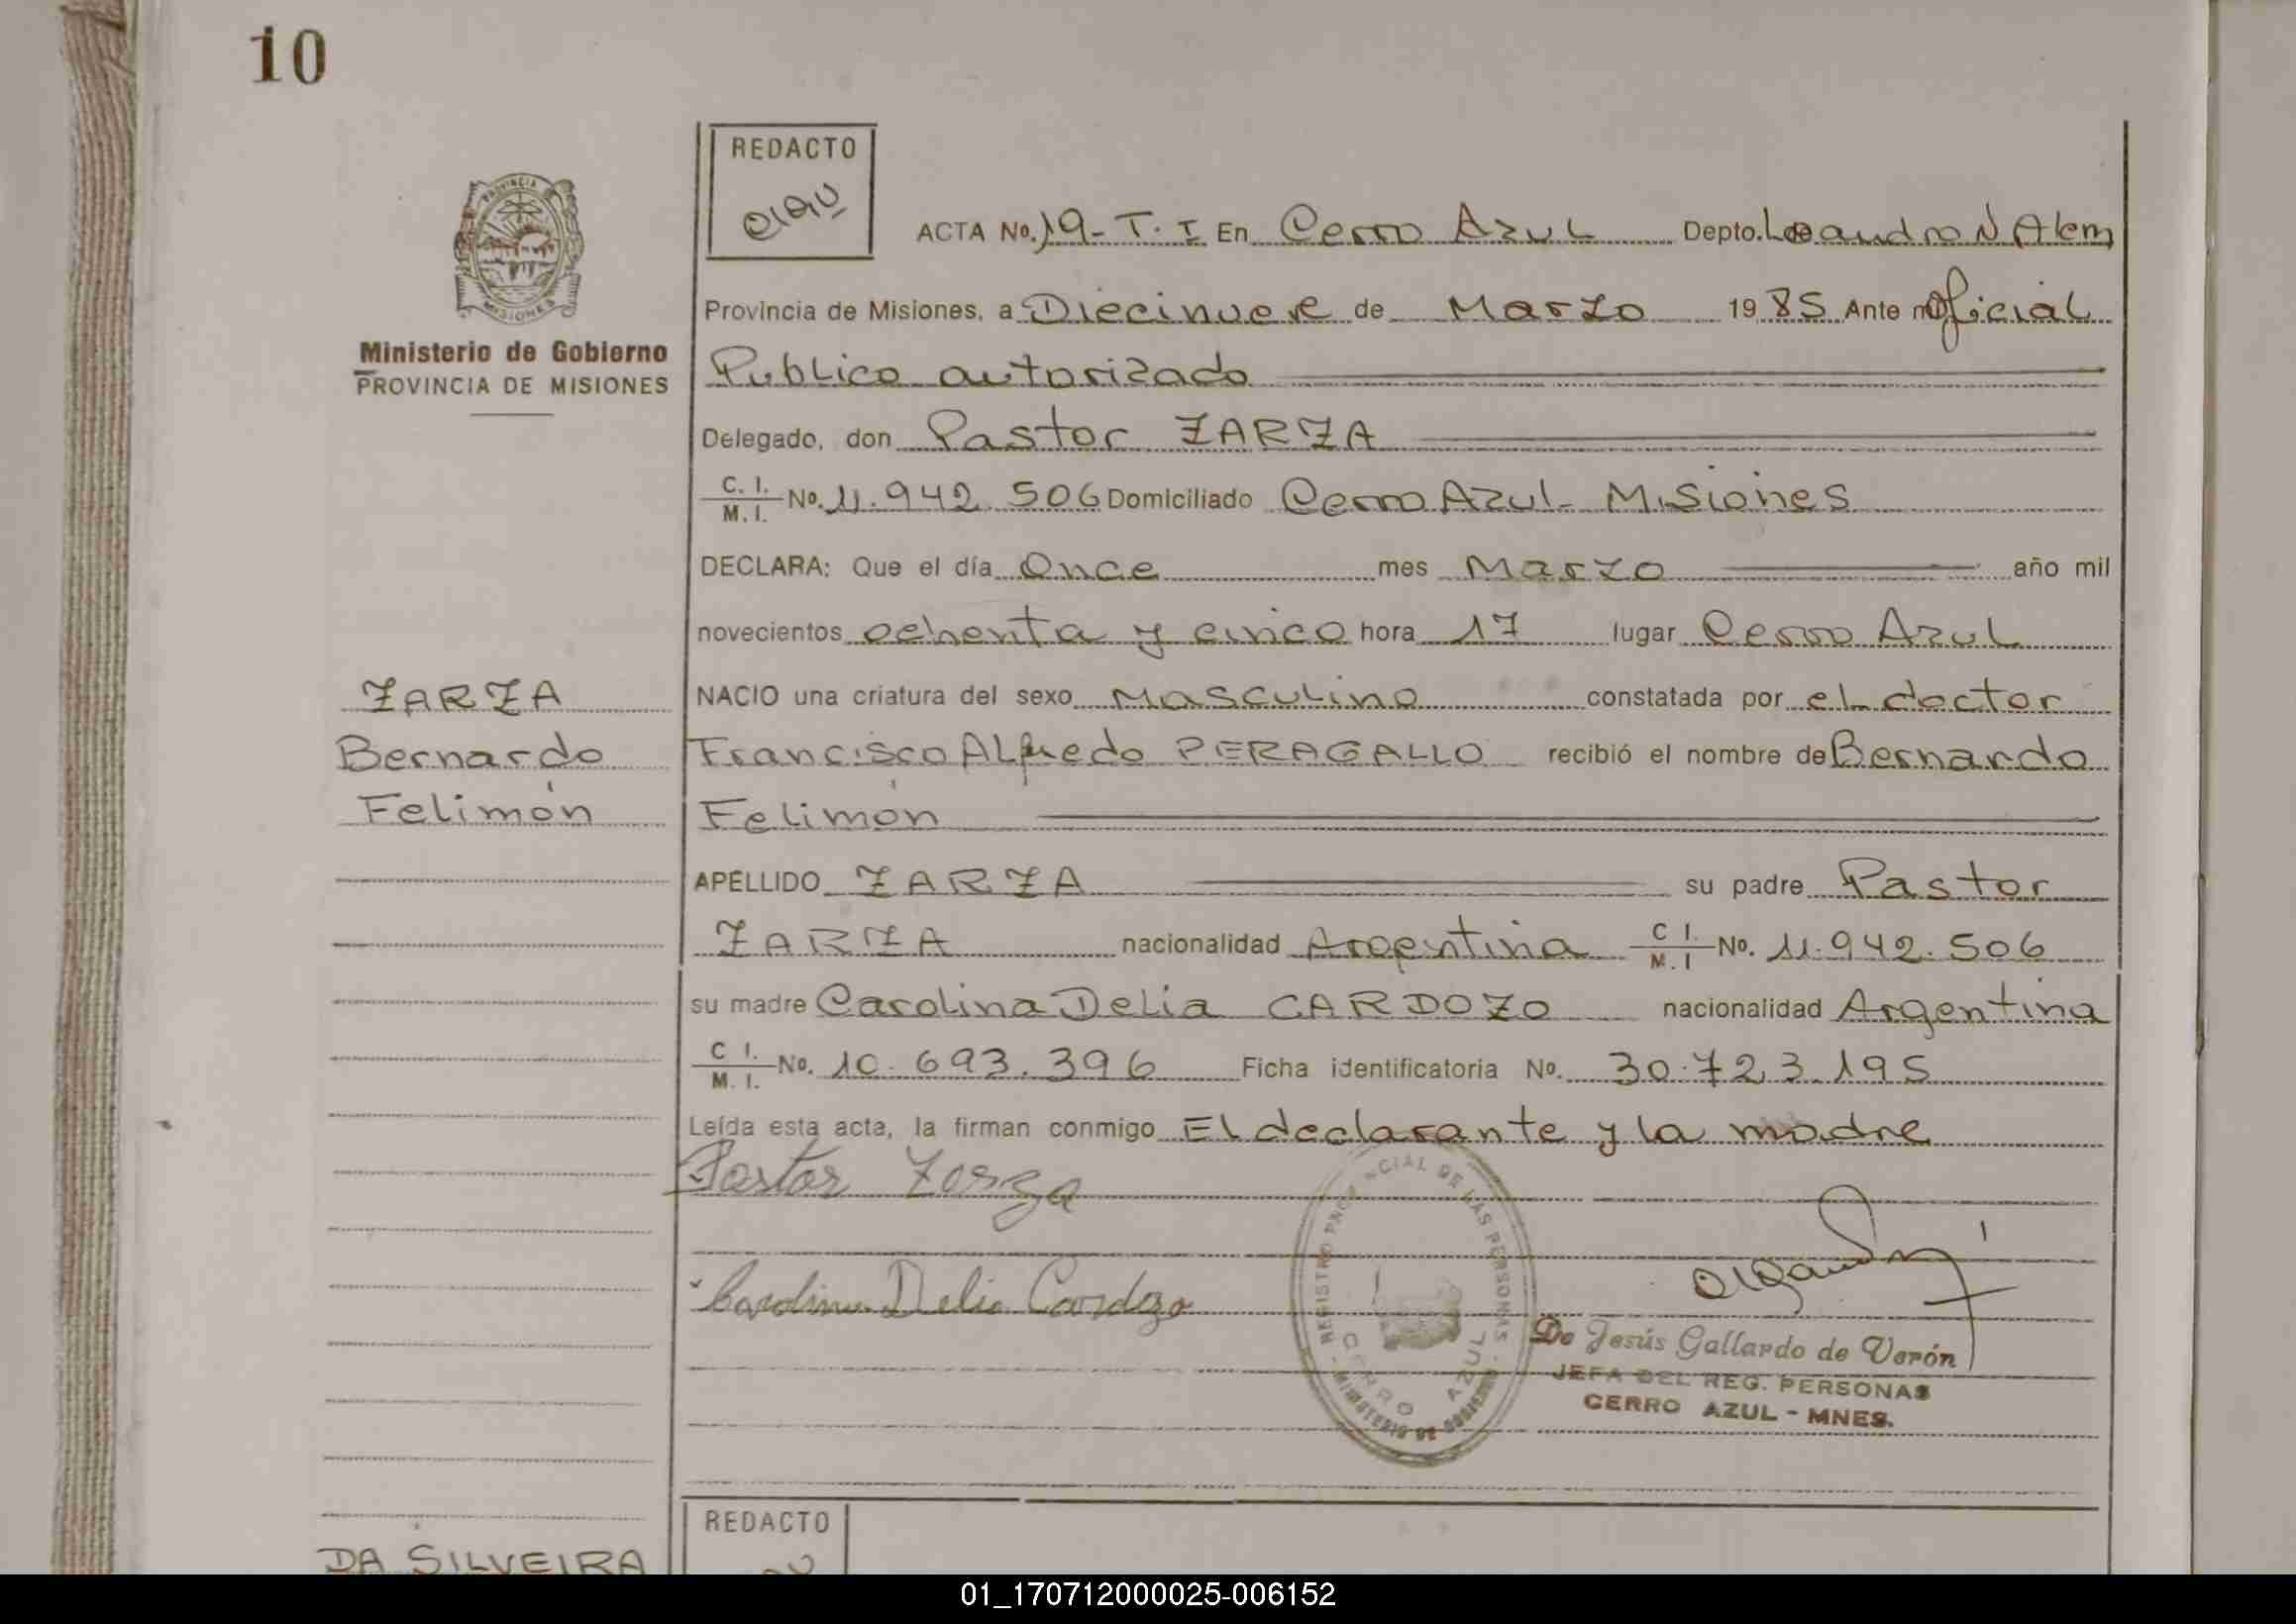 10
REDACTO
PROVINCIA
MISIONES
Ministerio de Gobierno
PROVINCIA DE MISIONES
ACTA No. 19-T. I En Cerro Azul Depto. Leandro N Alem
Provincia de Misiones, a Diecinueve de Marzo 1985 Ante mí Oficial
Publico autorizado
Delegado, don Pastor ZARZA
C. I. M. I. No. 11.942.506 Domiciliado Cerro Azul - Misiones
DECLARA: Que el día Once mes Marzo año mil
novecientos ochenta y cinco hora 17 lugar Cerro Azul
ZARZA
NACIO una criatura del sexo Masculino constatada por el doctor
Bernardo
Francisco Alfredo PERAGALLO recibió el nombre de Bernardo
Felimón
Felimón
APELLIDO ZARZA su padre Pastor
ZARZA nacionalidad Argentina C I. M. I No. 11.942.506
su madre Carolina Delia CARDOZO nacionalidad Argentina
C I. M. I. No. 10.693.396 Ficha identificatoria No. 30.723.195
Leída esta acta, la firman conmigo El declarante y la madre
Pastor Zarza
Carolina Delia Cardozo
REGISTRO PROVINCIAL DE LAS PERSONAS
CERRO AZUL
MINISTERIO DE GOBIERNO
De Jesús Gallardo de Verón
JEFA DEL REG. PERSONAS
CERRO AZUL - MNES.
REDACTO
DA SILVEIRA
01_170712000025-006152